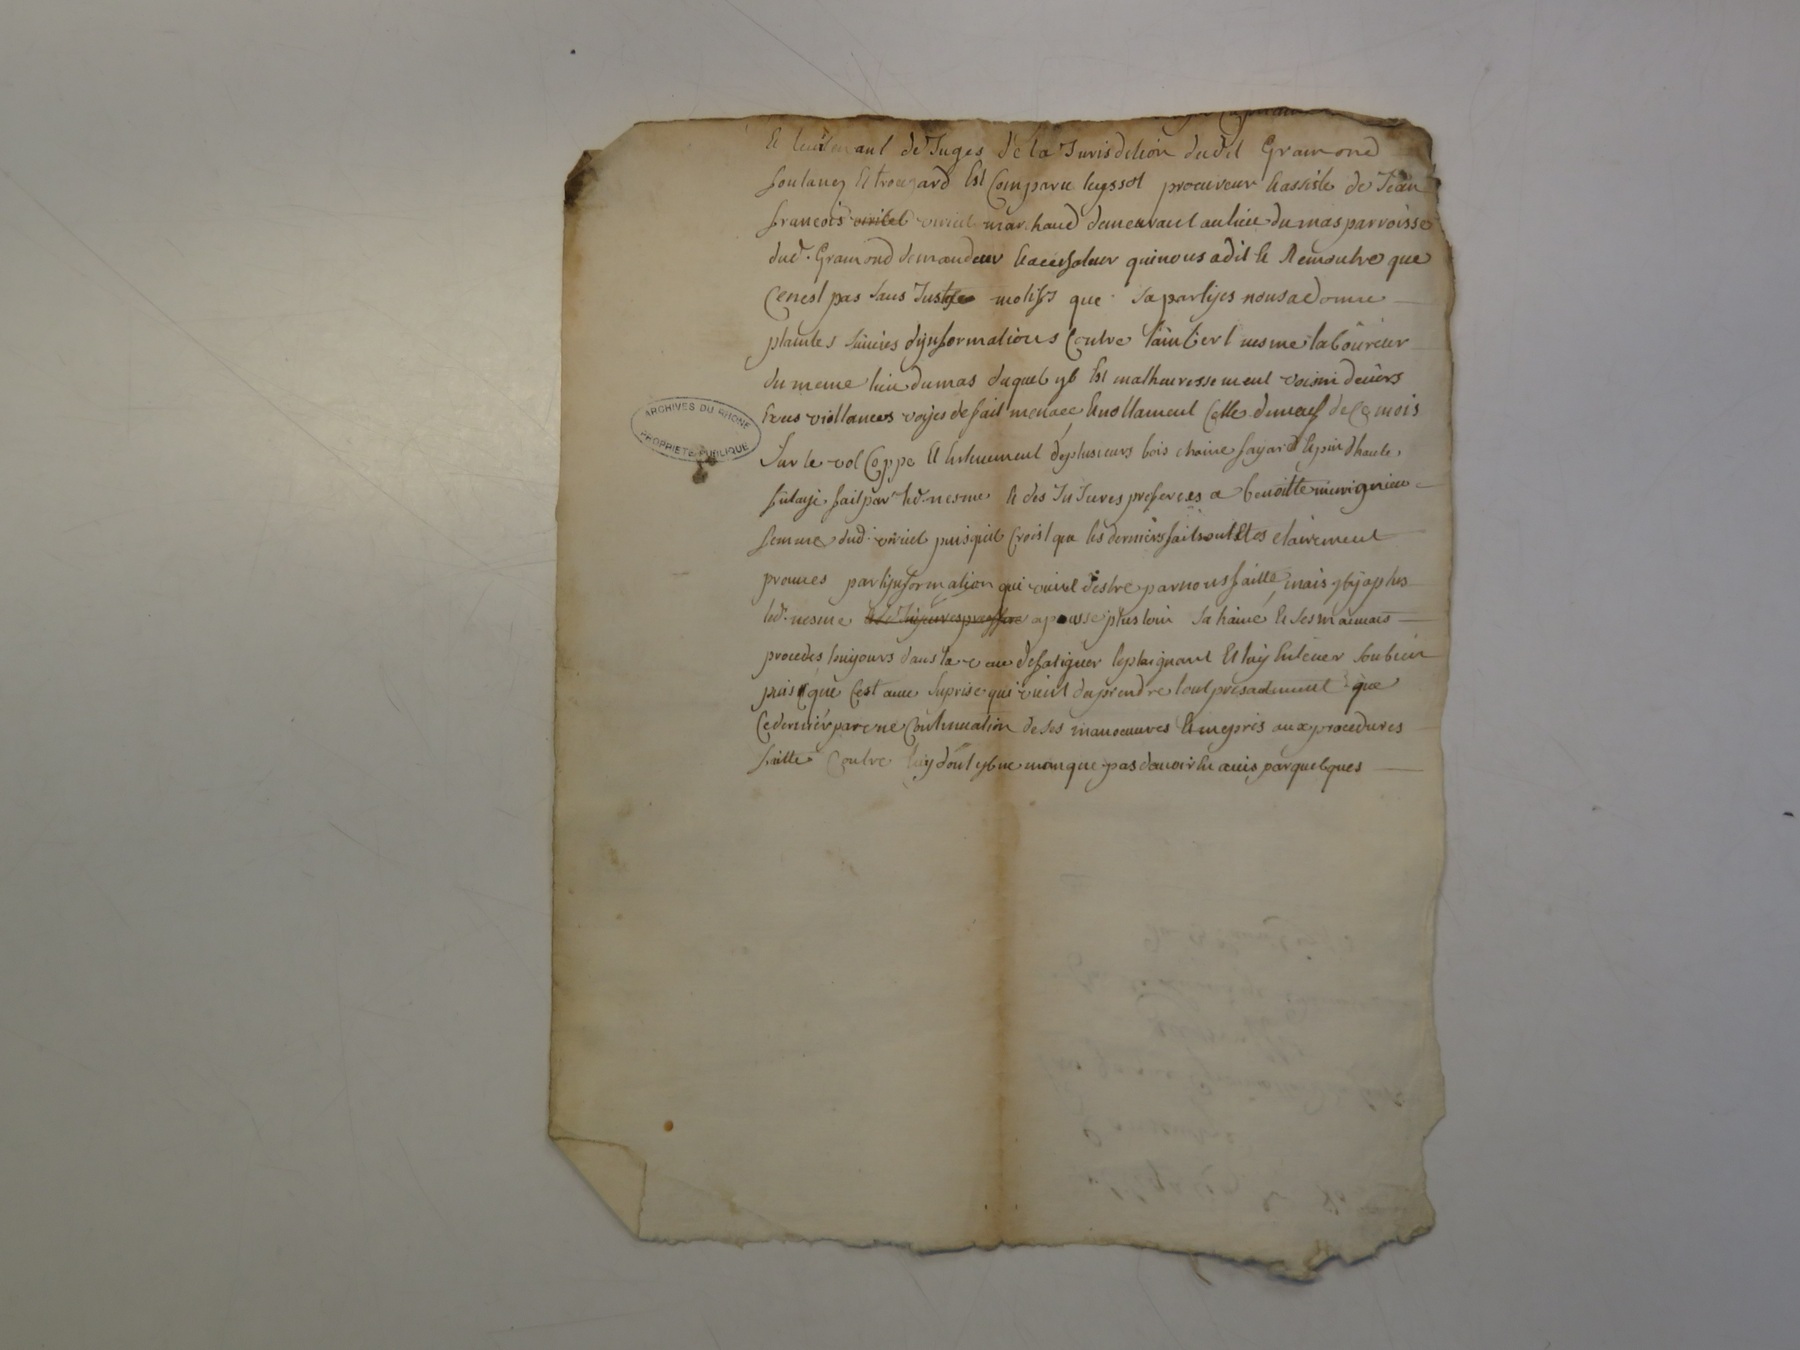 Et lieutenant de Juges de la Jurisdition dudit Gramond
fontaney Et trougard Est Comparu leyssot procureur & assiste de Jean
francois viricel marchand demeurant au lieu du mas parroisse
dud. Gramond demandeur & accusateur qui nous a dit & Remontre que
Cenest pas sans Justes motifs que sa partyes nous a donne
plaintes suivies dynformations Contre laimbert nesme laboureur
du meme lieu du mas duquel yl Est malheuressement voisin
tous viollances voyes de fait menace & nottament Celle du neuf de Ce mois
Sur le vol Coppe Et Enlevement de plusieurs bois chaine fayard & pin dhaute
futaye fait par led. nesme & des InJures proferées a benoitte
femme dud. viricel puisquil Croist que les derniers faits ont Etes clairement
prouves par lynformation qui vient destre par nous faitte, mais yl y a plus
led. nesme a pousse plus loin sa haine & ses mauvais
procedes toujours dans la veue de fatiguer le plaignant Et luy Enlever son bien
puisque Cest avec suprise qui vient daprendre tout presentement que
Ce dernier par une Continuation de ses manoeuvres & mepris aux procedures
faitte Contre luy dont yl ne manque pas davoir Eu avis par quelques
ARCHIVES DU RHONE
PROPRIETE PUBLIQUE